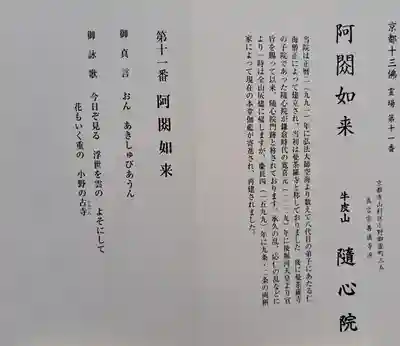 京都十三佛 霊場 第十一番
阿閦如来
牛皮山 隨心院
京都市山科区小野御霊町三五
真言宗善通寺派
当院は正暦二(九九一)年に弘法大師空海より数えて八代目の弟子にあたる仁
海僧正によって建立され、当初は曼荼羅寺と称しておりました。後に曼荼羅寺
の子院であった隨心院が鎌倉時代の寛喜元(一二二九)年に後堀河天皇より宣
旨を賜って以来、隨心院門跡と称されております。承久の乱、応仁の乱などに
より一時は全山灰燼に帰しますが、慶長四(一五九九)年に九条・二条の両摂
家によって現在の本堂伽藍が寄進され、再建されました。
第十一番 阿閦如来
御真言 おん あきしゅびあうん
御詠歌 今日ぞ見る 浮世を雲の よそにして
花もいく重の 小野の古寺